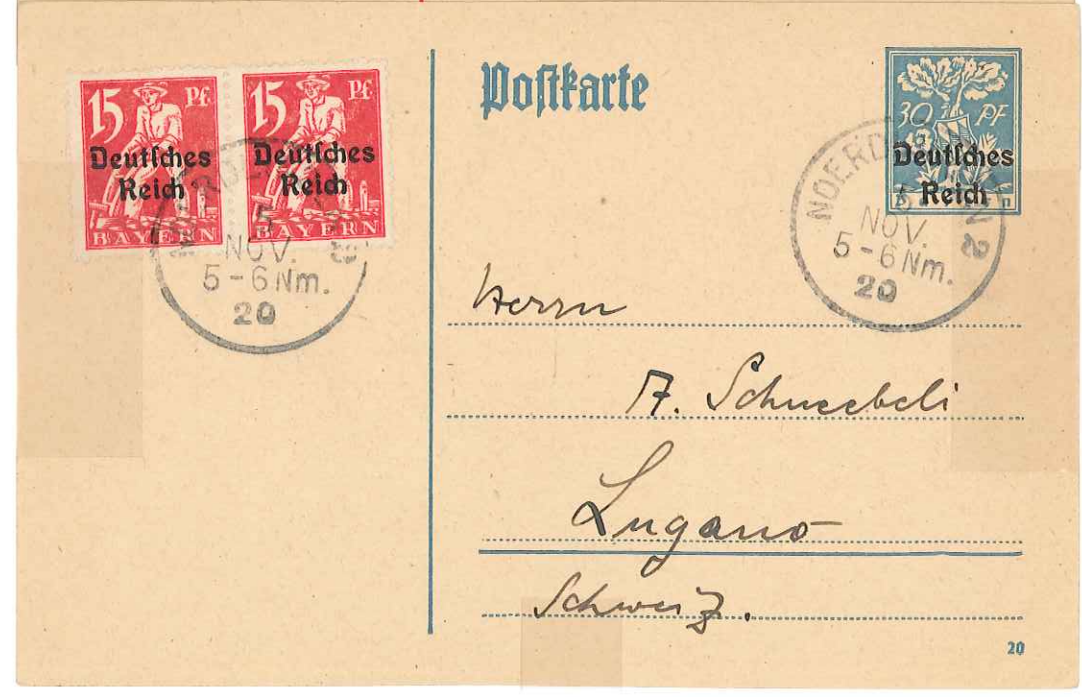 15 Pf
Deutsches
Reich
BAYERN
15 Pf
Deutsches
Reich
BAYERN
5
NOV.
5-6 Nm.
20
Postkarte
30 PF
Deutsches
Reich
NOERDLINGEN 2
5
NOV.
5-6 Nm.
20
Herrn
A. Schneebeli
Lugano
Schweiz.
20